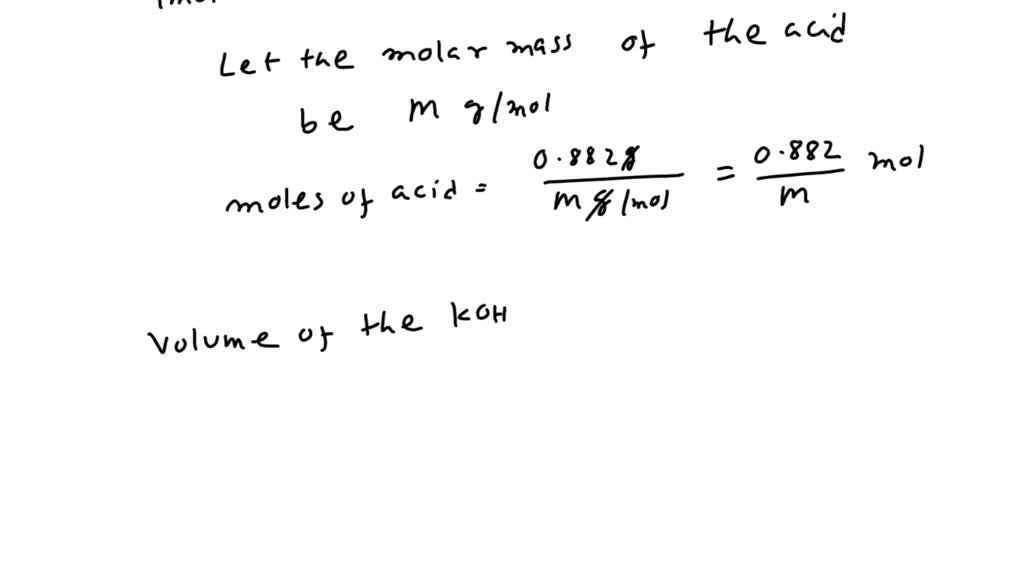 Let the molar mass of the acid
be M g/mol
moles of acid = 0.882g / M g/mol = 0.882 / M mol
Volume of the KOH